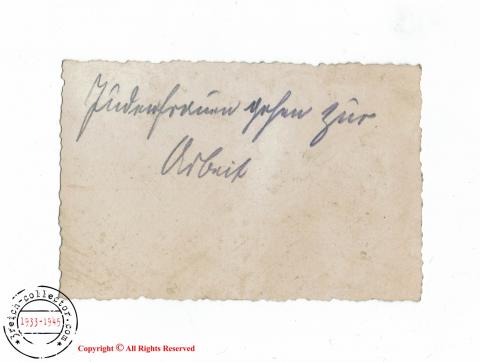 Judenfrauen gehen zur
Arbeit
3reich-collector.com
1933-1945
Copyright © All Rights Reserved